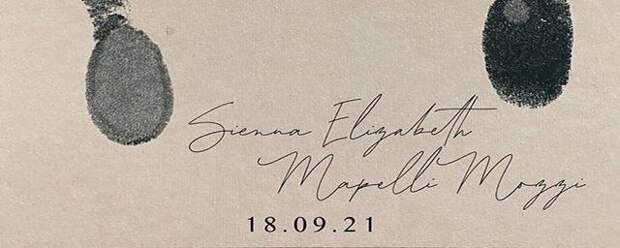 Sienna Elizabeth
Mapelli Mozzi
18.09.21